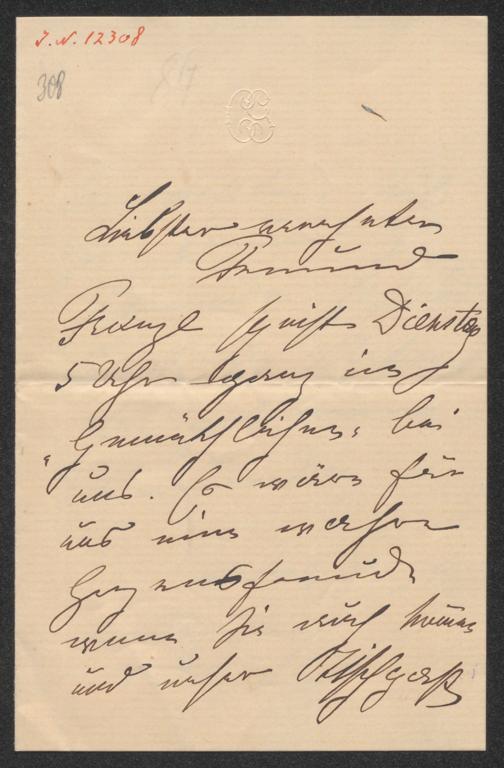 J.N. 12308
308
Liebster verehrter
Freund
Frenzel speist Dienstag
5 Uhr ganz im
"Gemüthlichen" bei
uns. Es wäre für
uns eine wahre
Herzensfreude
wenn Sie auch kämen
und unser Tischgast